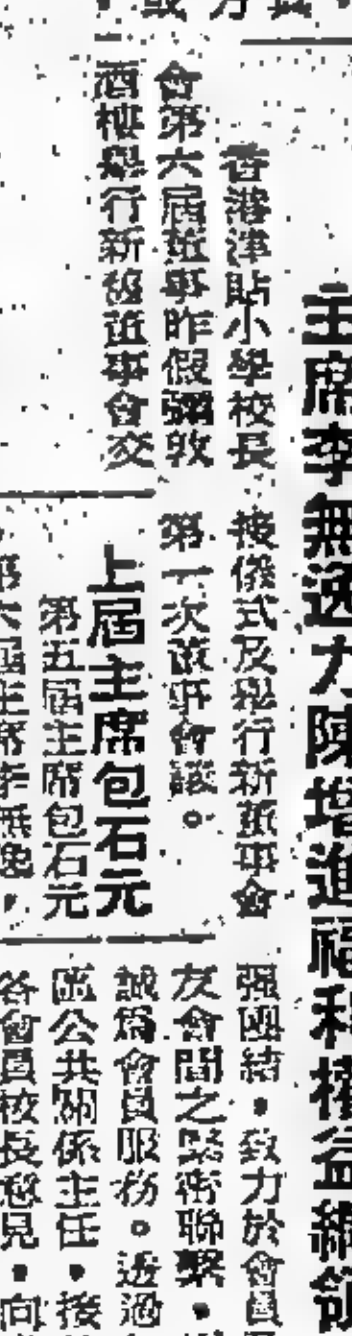 主席李無逸力陳增進福利權益綱領
香港津貼小學校長
會第六屆董事昨假彌敦
酒樓舉行新舊董事會交
接儀式及舉行新董事會
第一次董事會議。
上屆主席包石元
第五屆主席包石元
第六屆主席李無逸，
强團結，致力於會員
友會間之緊密聯繫，
誠爲會員服務。透過
區公共關係主任，接
各會員校長意見，向